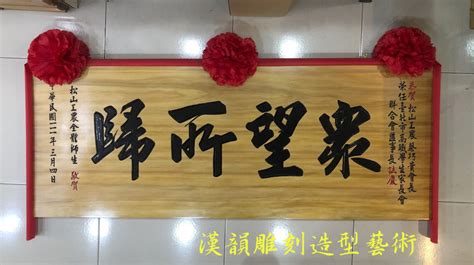 恭賀 松山工農蔡巧會長
榮任臺北市高職學生家長會
聯合會理事長誌慶
眾望所歸
松山工農全體師生 敬賀
華民國一一一年三月四日
漢韻雕刻造型藝術